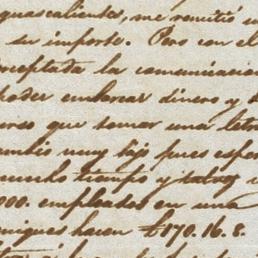 guascalientes, me remitió u
su importe. Pero con el
nceptada la comunicacion
poder embarcar dinero y
eres que tomar una letra
ambio muy bajo pues esper
mucho tiempo y
000. empleados en una
niques hacen £170.16.8.